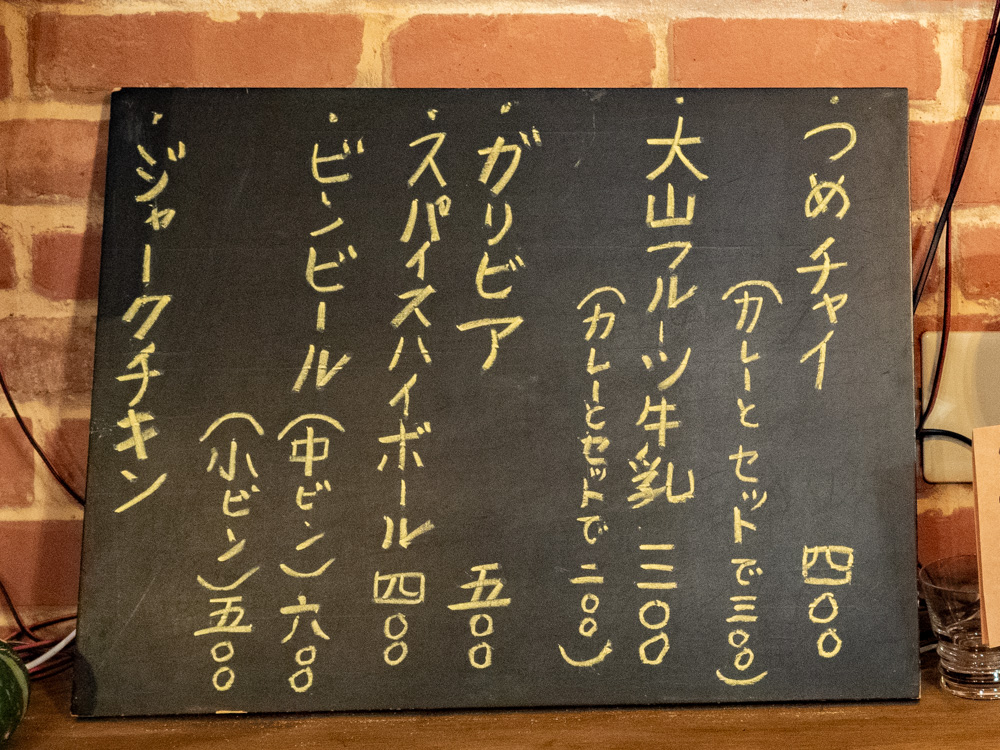 ・つめチャイ 四〇〇
（カレーとセットで三〇〇）
・大山フルーツ牛乳 三〇〇
（カレーとセットで二〇〇）
・ガリビア 五〇〇
・スパイスハイボール 四〇〇
・ビンビール（中ビン）六〇〇
（小ビン）五〇〇
・ジャークチキン